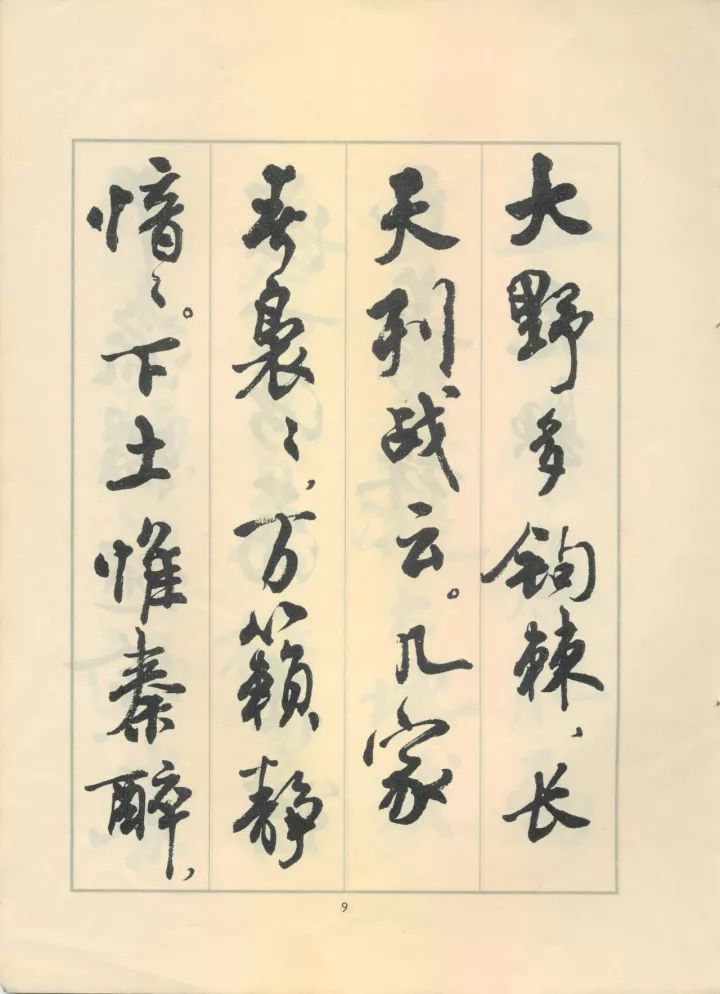 大野多鉤棘，长
天列战云。几家
春裊〻，万籁静
愔〻。下土惟秦醉，
9